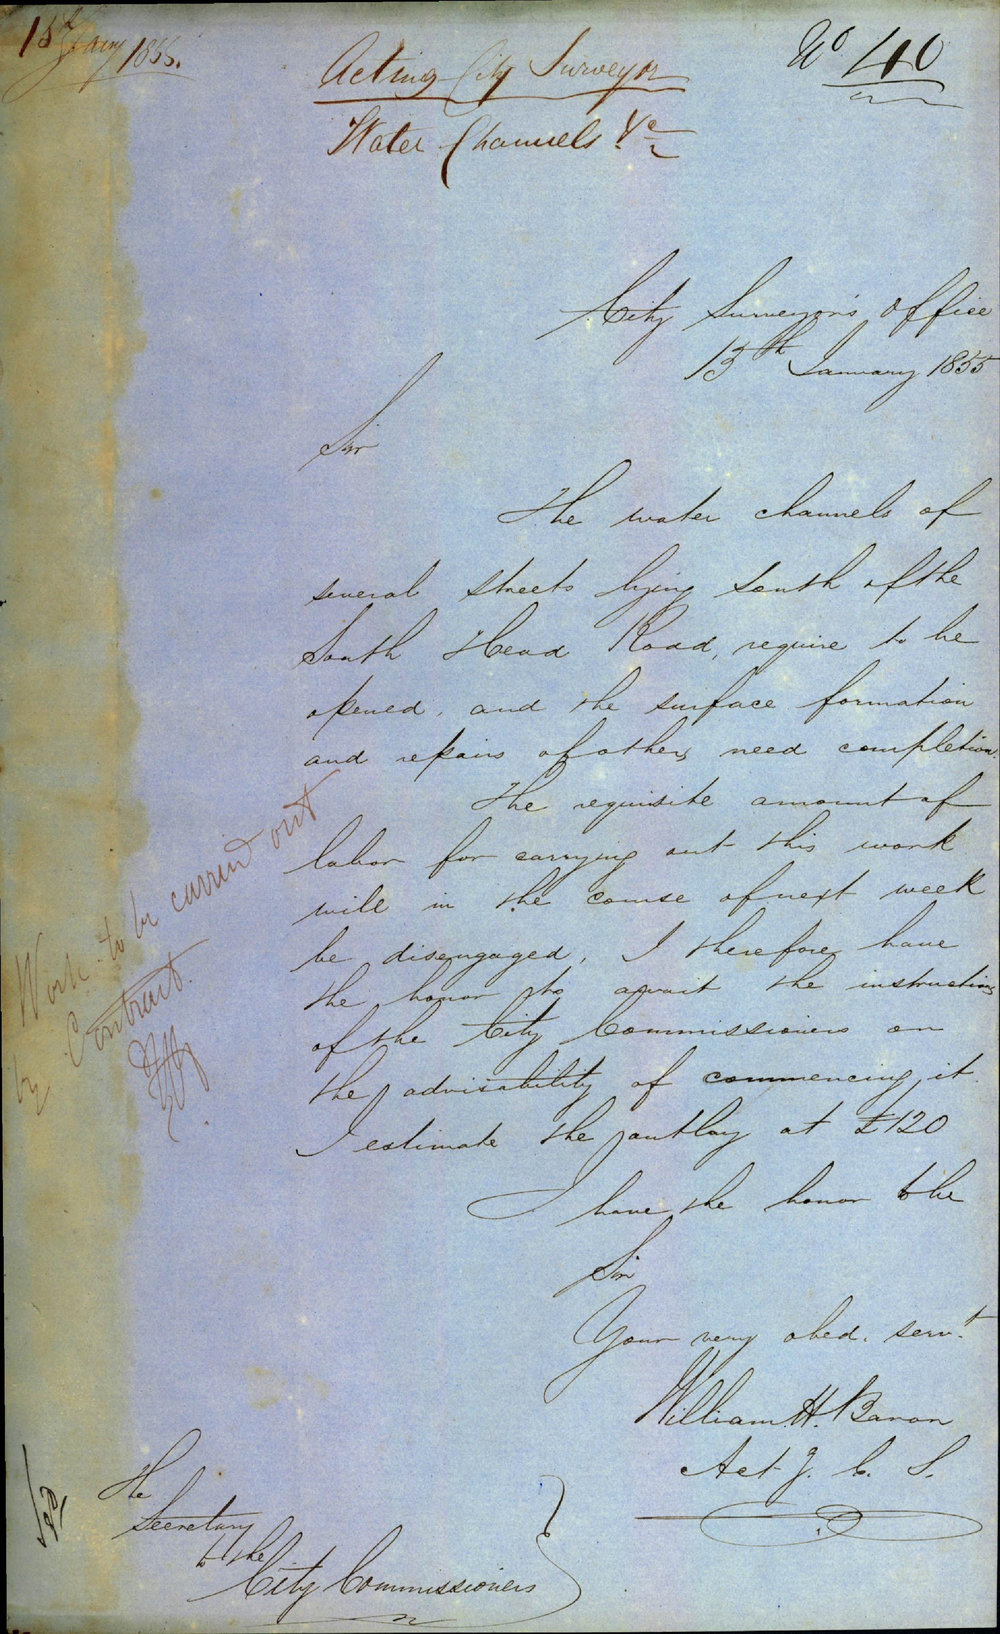 15th Jany 1855.
No 40
Acting City Surveyor
Water Channels &c
City Surveyor's Office
13th January 1855
Sir
The water channels of
several streets lying South of the
South Head Road, require to be
opened, and the surface formation
and repairs of others, need completion.
The requisite amount of
labor for carrying out this work
will in the course of next week
be disengaged, I therefore have
the honor to await the instructions
of the City Commissioners on
the advisability of commencing it.
I estimate the outlay at £120
I have the honor to be
Sir
Your very obed. servt.
William. H. Baron
Actg. C. S.
Work to be carried out
by Contract.
The
Secretary
to the
City Commissioners